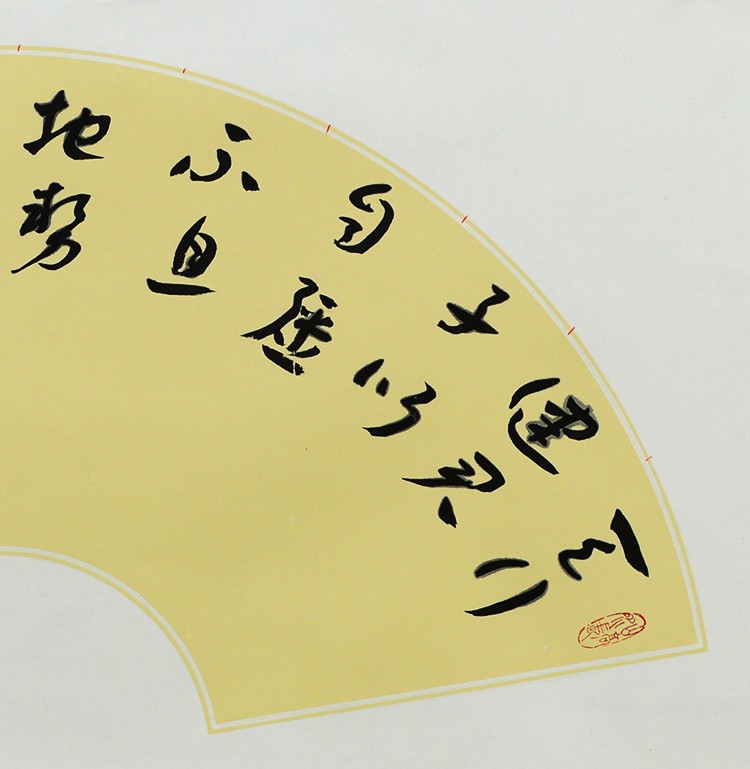 天行
健君
子以
自彊
不息
地勢